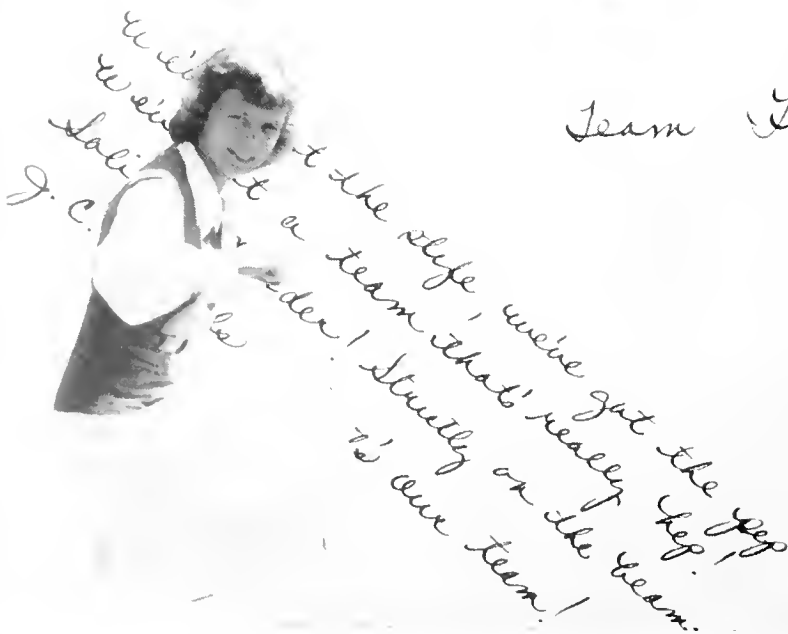 Team
t the life, we've got the pep
We've t a team that's really hep!
Soli der! Strictly on the beam.
J. C. is our team!